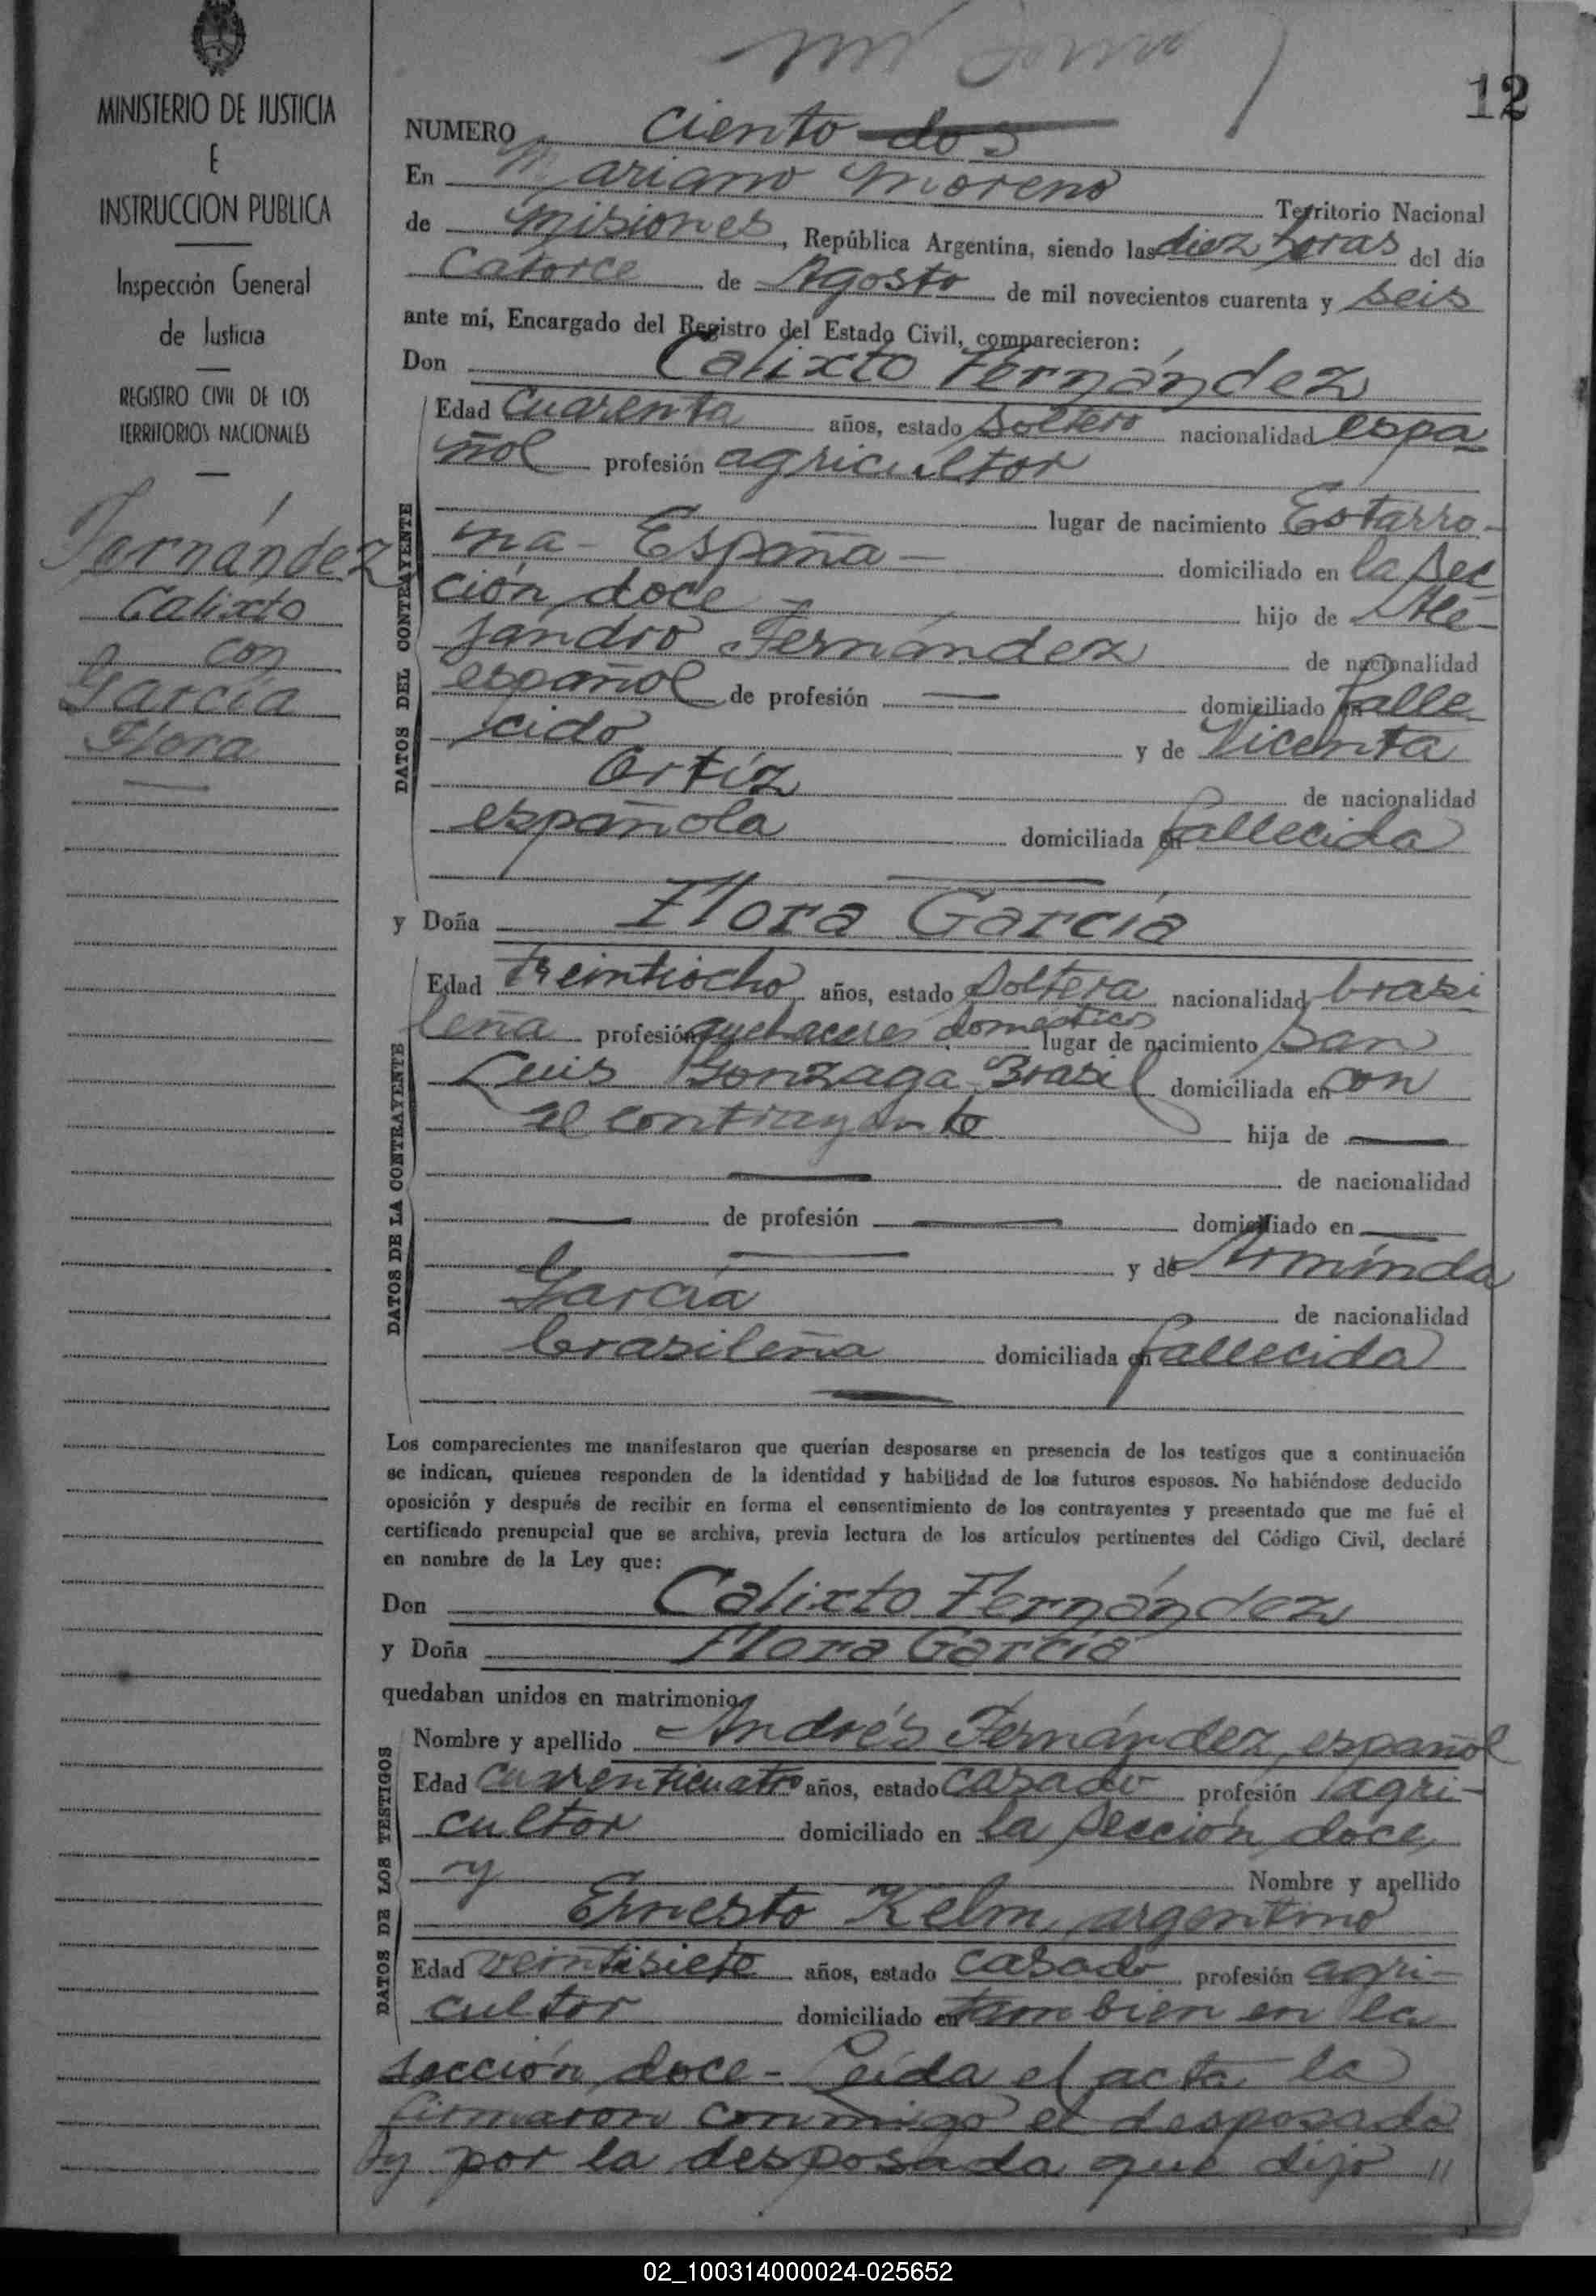 12
MINISTERIO DE JUSTICIA
E
INSTRUCCION PUBLICA
Inspección General
de Justicia
REGISTRO CIVIL DE LOS
TERRITORIOS NACIONALES
Fernández
Calixto
con
García
Flora
NUMERO ciento dos
En Mariano Moreno Territorio Nacional
de Misiones, República Argentina, siendo las diez horas del día
Catorce de Agosto de mil novecientos cuarenta y seis
ante mí, Encargado del Registro del Estado Civil, comparecieron:
Don Calixto Fernández
DATOS DEL CONTRAYENTE
Edad Cuarenta años, estado soltero nacionalidad espa-
ñol profesión agricultor
lugar de nacimiento Estarro-
na - España - domiciliado en la Sec
ción doce hijo de Ale-
jandro Fernández de nacionalidad
español de profesión — domiciliado en falle-
cido y de Vicenta
Ortíz de nacionalidad
española domiciliada en fallecida
y Doña Flora García
DATOS DE LA CONTRAYENTE
Edad treintiocho años, estado soltera nacionalidad brasi
leña profesión quehaceres domésticos lugar de nacimiento San
Luis Gonzaga Brasil domiciliada en con
el contrayente hija de —
— de nacionalidad
— de profesión — domiciliado en —
— y de Arminda
García de nacionalidad
brasileña domiciliada en fallecida
Los comparecientes me manifestaron que querían desposarse en presencia de los testigos que a continuación
se indican, quienes responden de la identidad y habilidad de los futuros esposos. No habiéndose deducido
oposición y después de recibir en forma el consentimiento de los contrayentes y presentado que me fué el
certificado prenupcial que se archiva, previa lectura de los artículos pertinentes del Código Civil, declaré
en nombre de la Ley que:
Don Calixto Fernández
y Doña Flora García
quedaban unidos en matrimonio
DATOS DE LOS TESTIGOS
Nombre y apellido Andrés Fernández, español
Edad cuarenticuatro años, estado casado profesión agri-
cultor domiciliado en la sección doce,
y Nombre y apellido
Ernesto Kelm, argentino
Edad veintisiete años, estado casado profesión agri-
cultor domiciliado en tambien en la
sección doce - Leída el acta la
firmaron conmigo el desposado
y por la desposada que dijo "
02_100314000024-025652